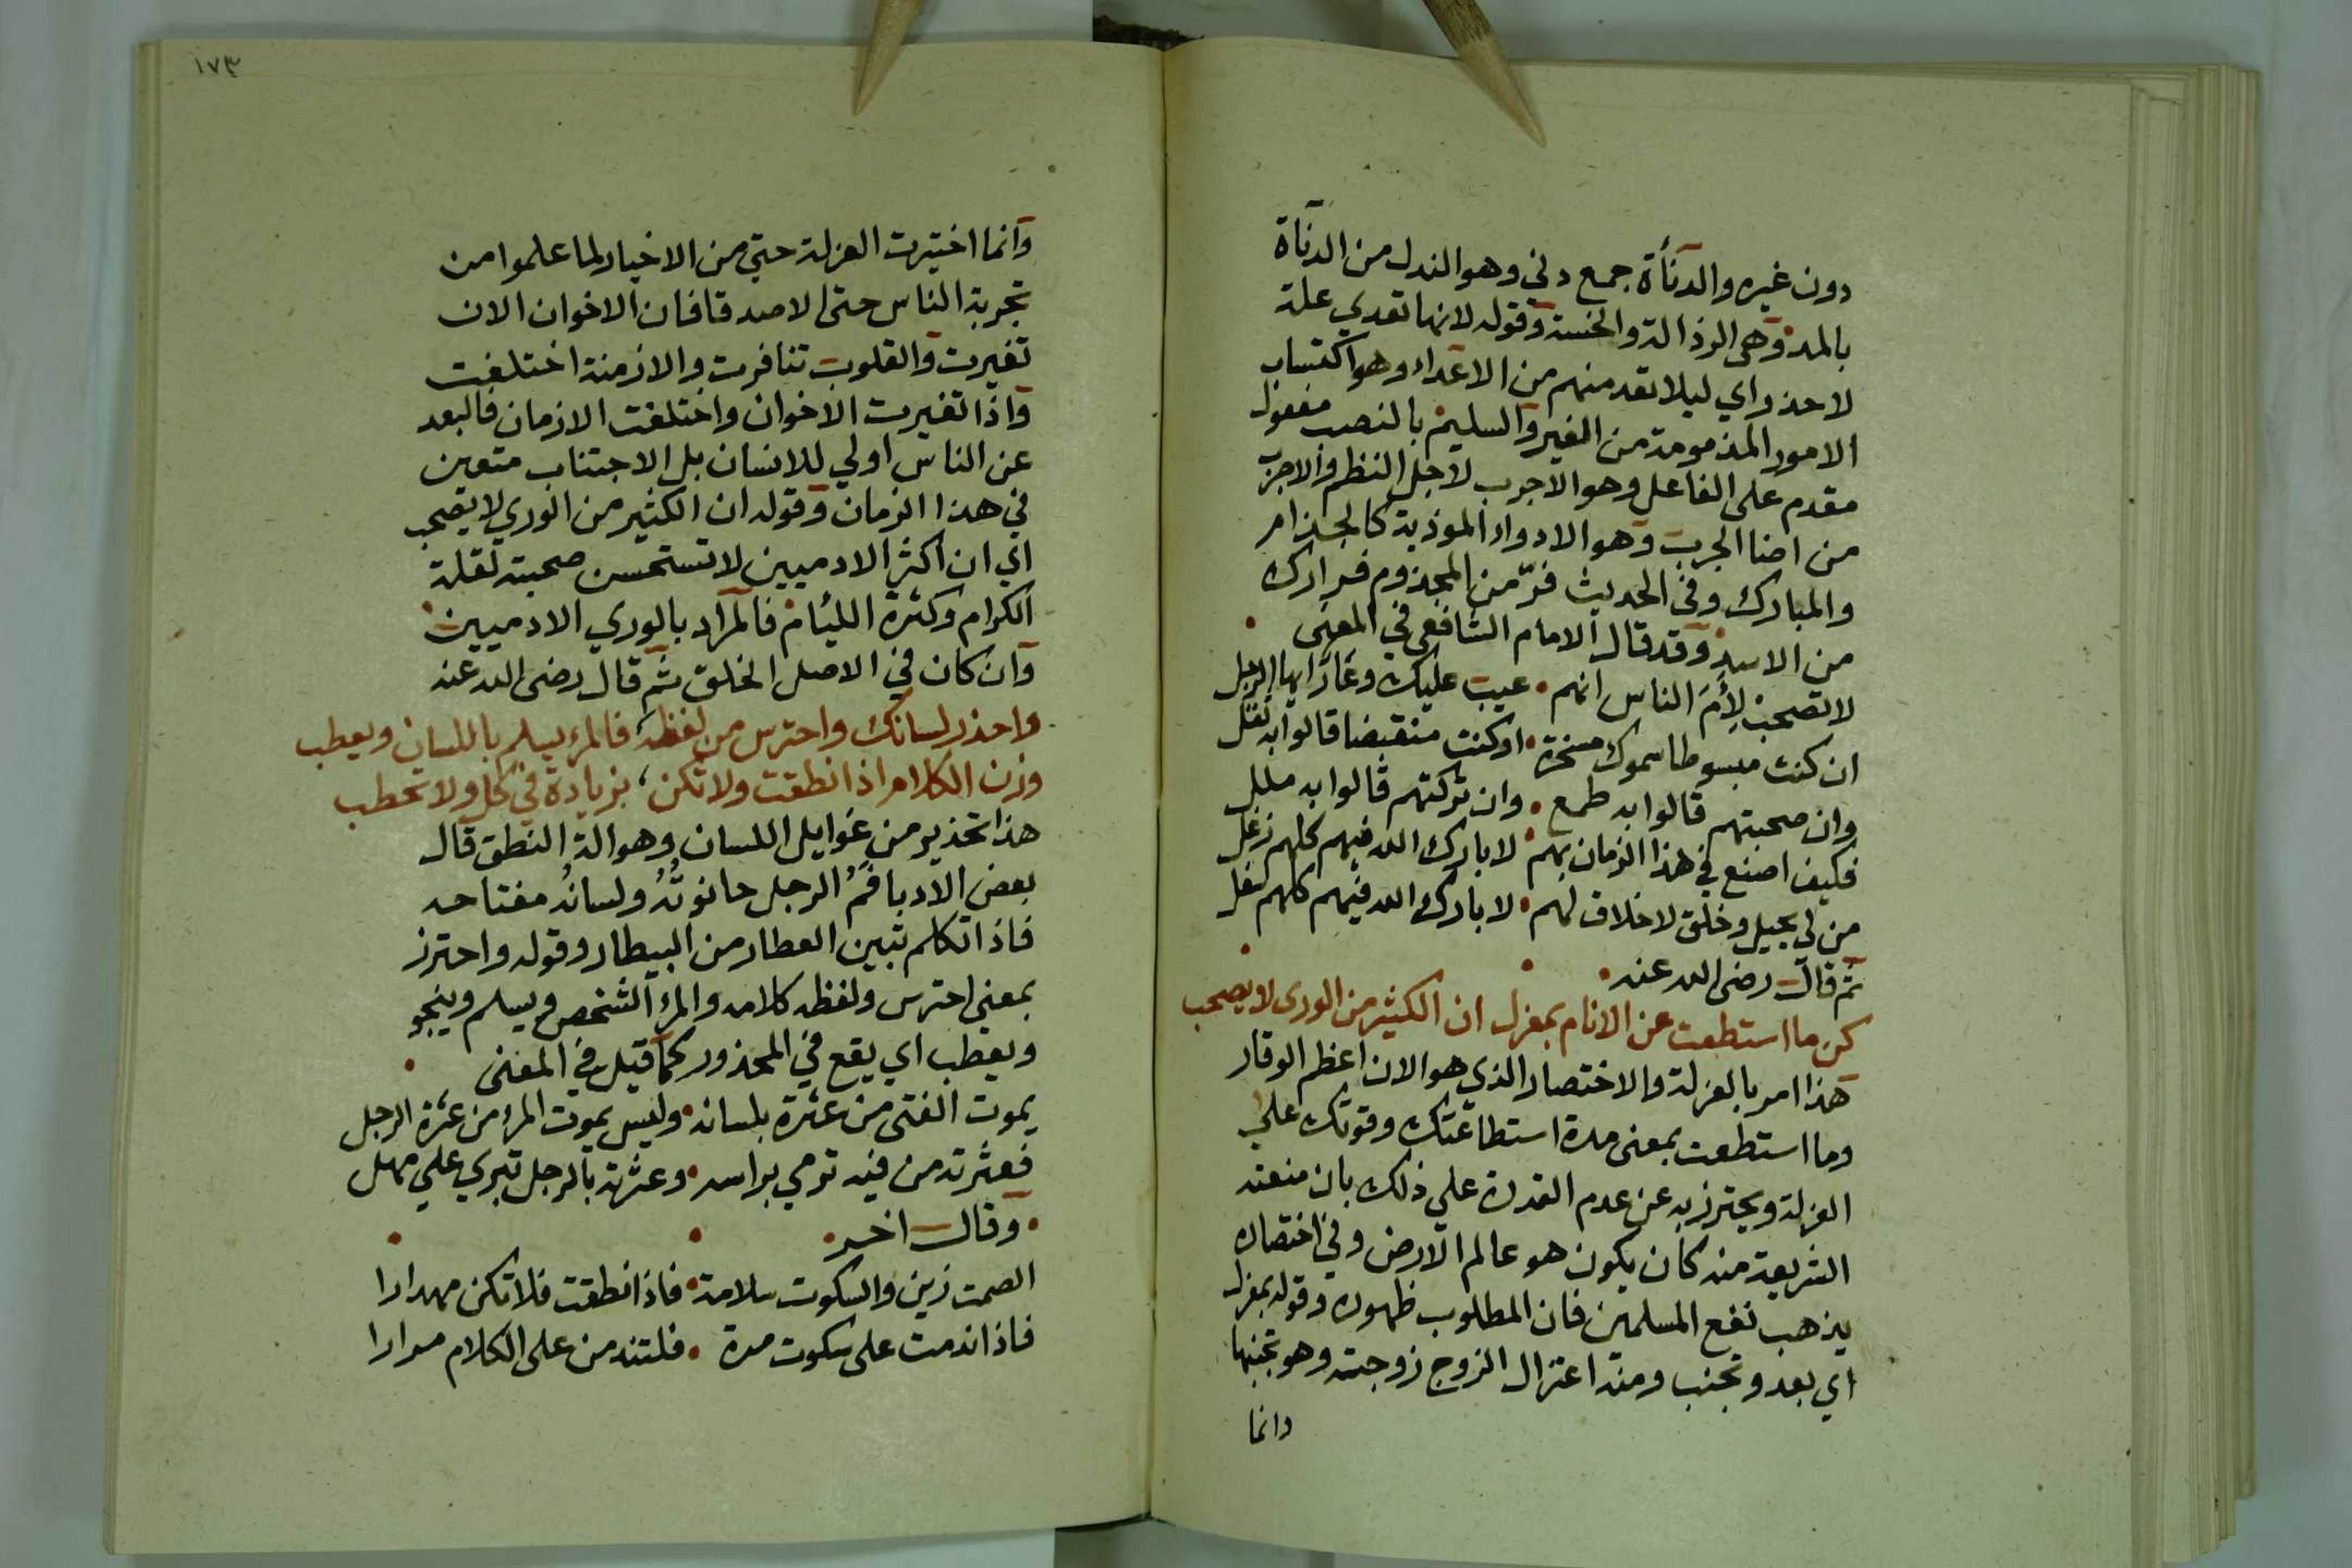 دون غيره والدنأة جمع دني وهو الندل من الدنآة
بالمد وهي الرذالة والخسة وقوله لانها تعدي علة
لاحذر اي ليلا تعد منهم من الاعداء وهو اكتساب
الامور المذمومة من الغير والسليم بالنصب مفعول
مقدم على الفاعل وهو الاجرب لاجل النظم والاجرب
من اصنا الجرب وهو الادواء الموذية كالجذام
والمبارك وفي الحديث فرّ من المجذوم فرارك
من الاسد وقد قال الامام الشافعي في المعنى
لا تصحبن لِأَمَ الناس انهم عيب عليك وعار ايها الرجل
ان كنت مبسوطا سموك مسخرة اوكنت منقبضا قالوا به ثقل
وان صحبتهم قالوا به طمع وان تركتهم قالوا به ملل
فكيف اصنع في هذا الزمان بهم لا بارك الله فيهم كلهم زغل
من لي بجيل وخلق لا خلاق لهم لا بارك الله فيهم كلهم
ثم قال رضى الله عنه
كن ما استطعت عن الانام بمعزل ان الكثير من الورى لا يصحب
هذا امر بالعزلة والاختصار الذي هو الان اعظم الوقار
وما استطعت بمعنى مدة استطاعتك وقوتك علي
العزلة ويحترز به عن عدم القدرة علي ذلك بان منعته
الشريعة منه كان يكون هو عالم الارض وفي اختصاره
يذهب نفع المسلمين فان المطلوب ظهوره وقوله بمعزل
اي بعد وتجنب ومنه اعتزال الزوج زوجته وهو تجنبها
وانما
١٧٣
وانما اختيرت العزلة حتي من الاخيار لما علموا من
تجربة الناس حتى الاصدقا فان الاخوان الان
تغيرت والقلوب تنافرت والازمنة اختلفت
واذا تغيرت الاخوان واختلفت الازمان فالبعد
عن الناس اولي للانسان بل الاجتناب متعين
في هذا الزمان وقوله ان الكثير من الوري لا يصحب
اي ان اكثر الادميين لا تستحسن صحبته لقلة
الكرام وكثرة الليام فالمراد بالوري الادميين
وان كان في الاصل الخلق ثم قال رضى الله عنه
واحذر لسانك واحترس من لفظه فالمرء يسلم باللسان ويعطب
وزن الكلام اذا نطقت ولا تكن بزيادة في كل ولا تحطب
هذا تحذير من غوايل اللسان وهو الة النطق قال
بعض الادبا فَمُ الرجل حانوتُهُ ولسانُه مفتاحه
فاذا تكلم تبين العطار من البيطار وقوله واحترز
بمعنى احترس ولفظه كلامه والمرء الشخص ويسلم وينجو
ويعطب اي يقع في المحذور كما قيل في المعنى
يموت الفتى من عثرة بلسانه وليس يموت المرء من عثرة الرجل
فعثرته من فيه ترمي براسه وعثرته بالرجل تبري علي مهل
وقال اخر
الصمت زين والسكوت سلامة فاذا نطقت فلا تكن مهدارا
فاذا ندمت على سكوت مرة فلتندمن على الكلام مرارا